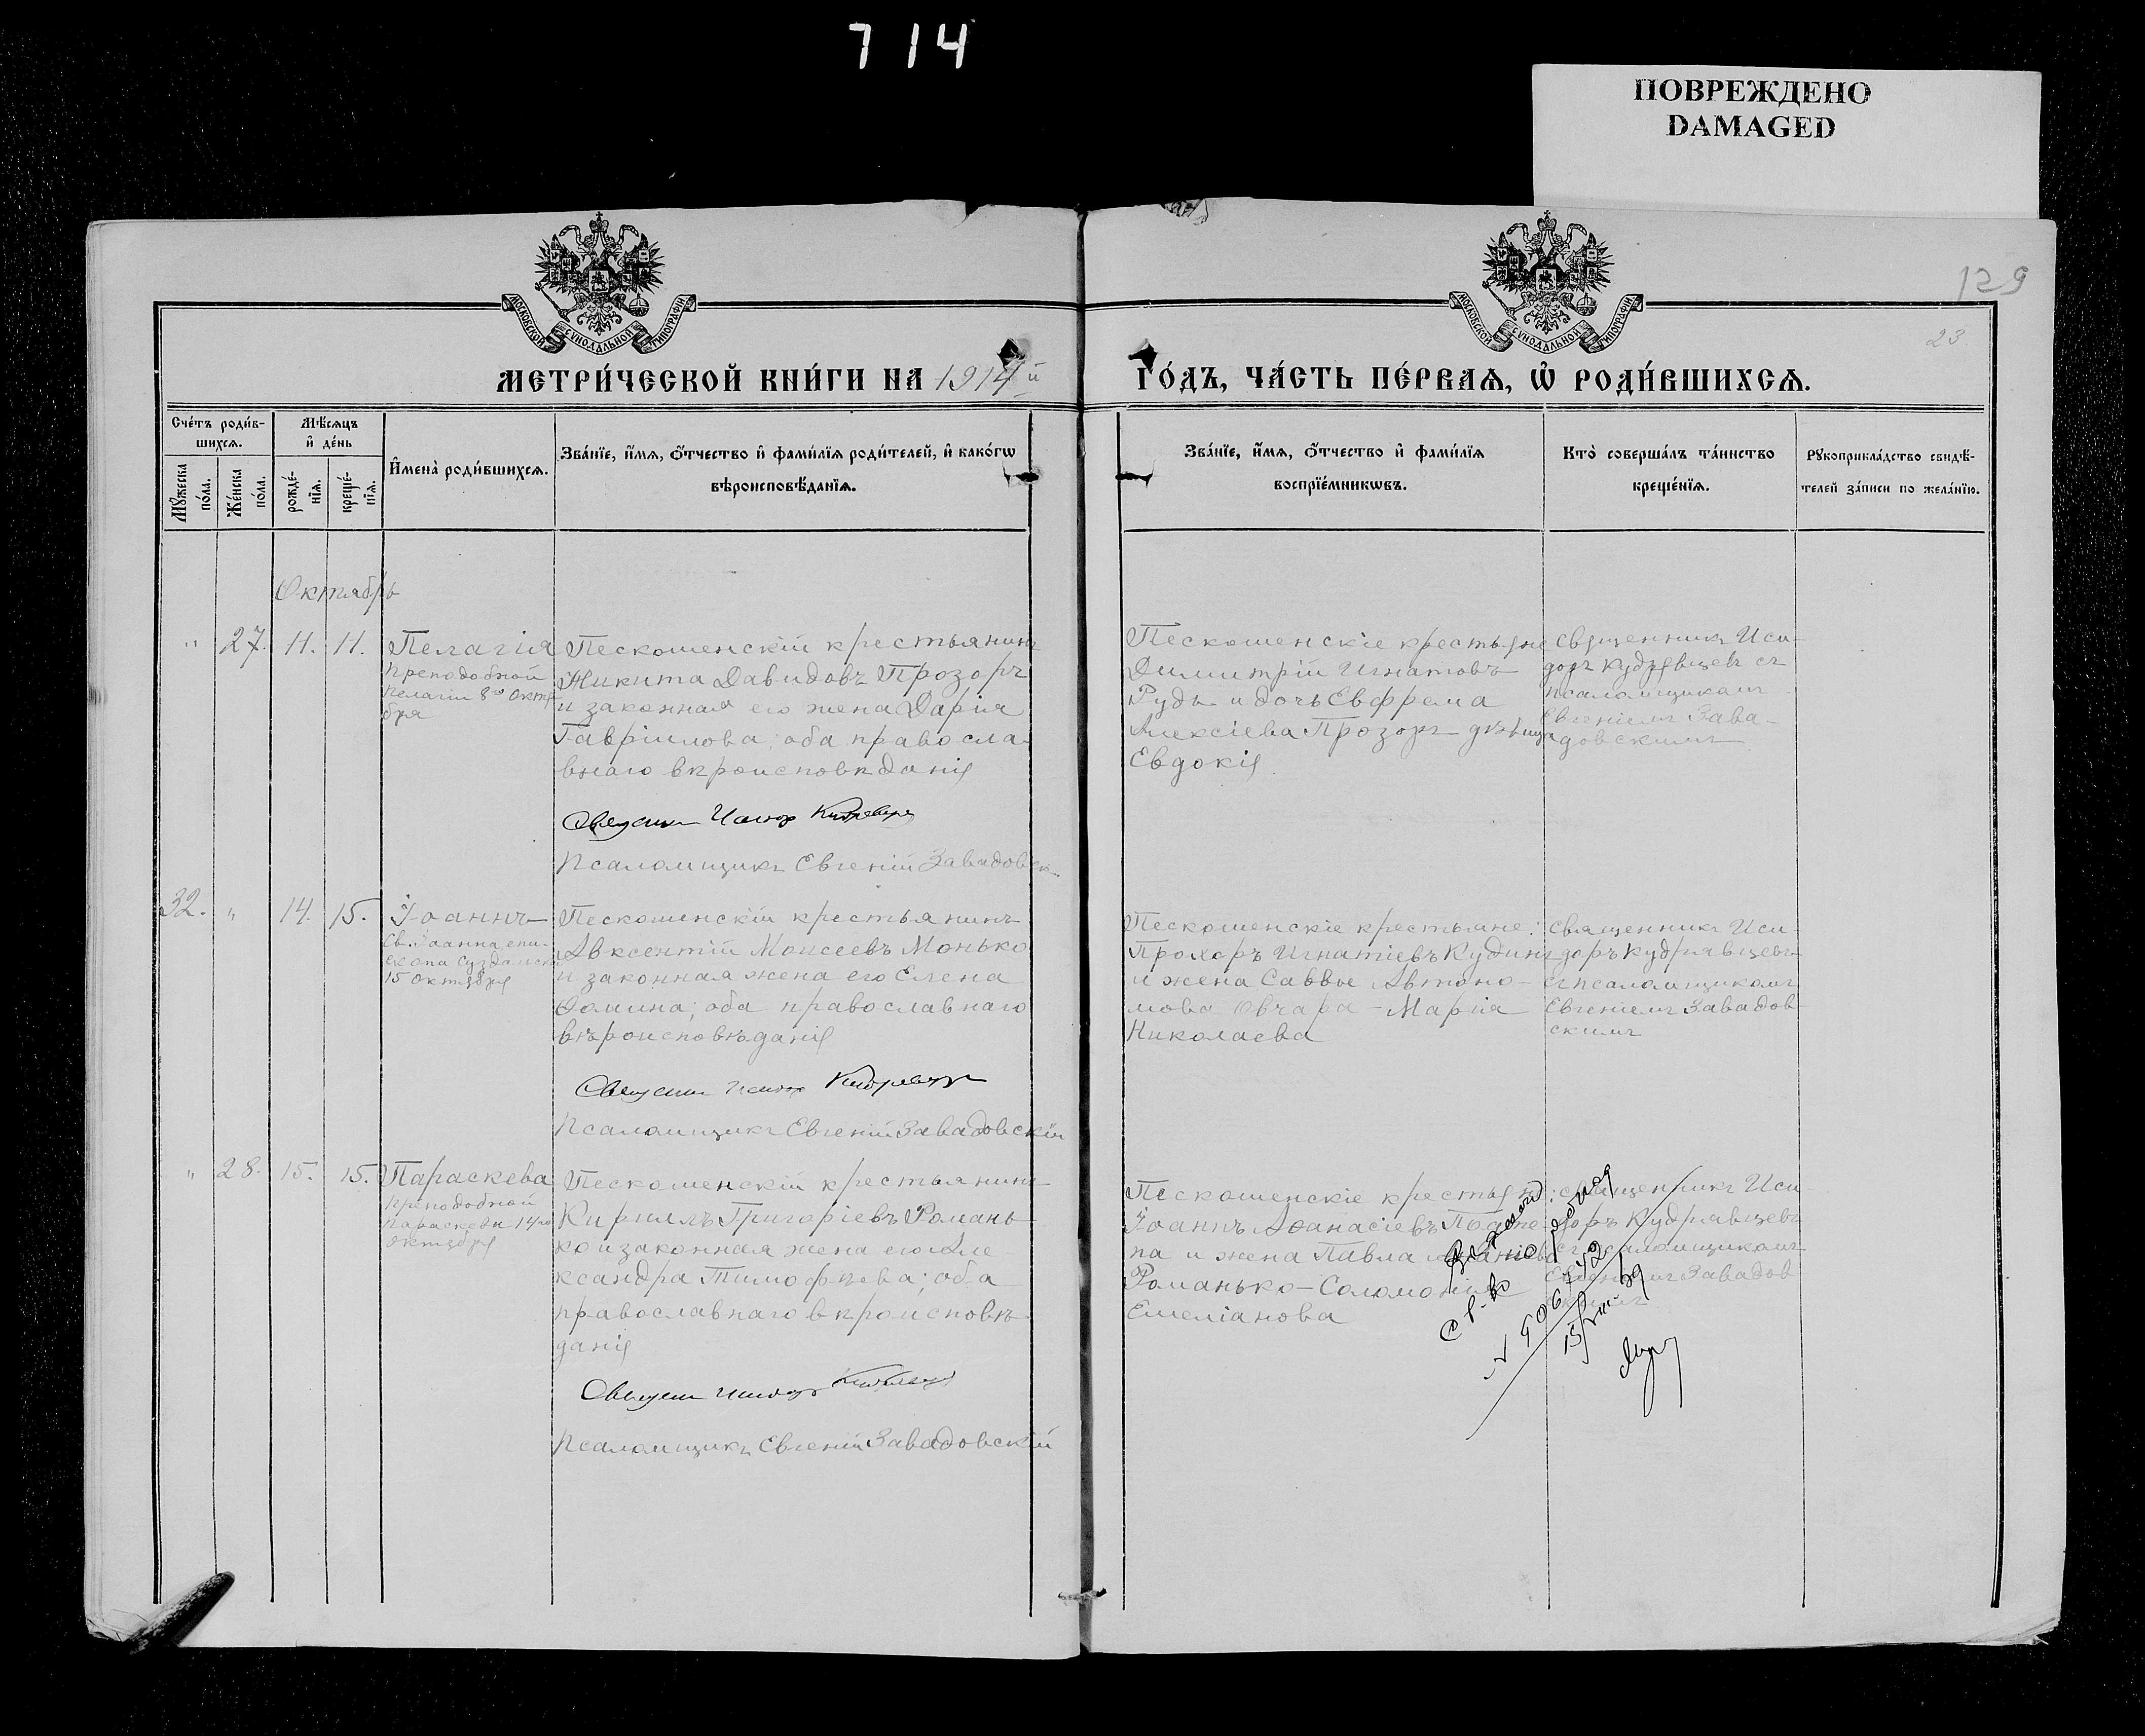 714
ПОВРЕЖДЕНО
DAMAGED
129
23.
МОСКОВСКОЙ СѴНОДАЛЬНОЙ ТИПОГРАФІИ
МОСКОВСКОЙ СѴНОДАЛЬНОЙ ТИПОГРАФІИ
МЕТРИ́ЧЕСКОЙ КНИ́ГИ НА 1914й ГО́ДЪ, ЧА́СТЬ ПЕ́РВАѦ, Ѽ РОДИ́ВШИХСѦ.
Сче́тъ роди́в-
шихсѧ.
Мꙋ́жеска
по́ла.
Же́нска
по́ла.
Мѣ́сѧцъ
и҆ де́нь
рожде́-
нїѧ.
креще́-
нїѧ.
И҆мена̀ роди́вшихсѧ.
Зва́нїе, и҆́мѧ, ѻ҆́тчество и҆ фами́лїѧ роди́телей, и҆ како́гѡ
вѣроисповѣ́данїѧ.
Зва́нїе, и҆́мѧ, ѻ҆́тчество и҆ фами́лїѧ
воспрїе́мникѡвъ.
Кто̀ соверша́лъ та́инство
креще́нїѧ.
Рꙋкоприкла́дство свидѣ́-
телей за́писи по жела́нїю.
Октябрь
" 27. 11. 11.
Пелагія
Преподобной
Пелагіи 8го Октя
бря
Пескошенскій крестьянинъ
Никита Давидовъ Прозоръ
и законная его жена Дарія
Гавріилова; оба правосла-
внаго вѣроисповѣданія
Священник Исидор Кудрявцев
Псаломщикъ Евгеній Завадовск
Пескошенскіе крестьяне
Димитрій Игнатовъ
Рудь и дочь Евфрема
Алексіева Прозоръ дѣвица
Евдокія
Священникъ Иси-
доръ Кудрявцевъ съ
псаломщикомъ
Евгеніемъ Зава-
довскимъ
32. " 14. 15.
Іоаннъ
Св. Іоанна епи-
скопа Суздальск
15 Октября
Пескошенскій крестьянинъ
Авксентій Моисеевъ Монько
и законная жена его Елена
Фомина; оба православнаго
вѣроисповѣданія
Священник Исидор Кудрявцев
Псаломщикъ Евгеній Завадовскій
Пескошенскіе крестьяне:
Прохоръ Игнатіевъ Кудинъ
и жена Саввы Автоно-
мова Овчара - Марія
Николаева
Священникъ Иси-
доръ Кудрявцевъ
съ псаломщикомъ
Евгеніемъ Завадов-
скимъ
" 28. 15. 15.
Параскева
Преподобной
Параскевы 14го
Октября
Пескошенскій крестьянинъ
Кириллъ Григоріевъ Романь-
ко и законная жена его Але-
ксандра Тимофѣева; оба
православнаго вѣроисповѣ-
данія
Священник Исидор Кудрявцев
Псаломщикъ Евгеній Завадовскій
Пескошенскіе крестьяне:
Іоаннъ Аѳанасіевъ
па и жена Павла
Романько - Соломонія
Емеліанова
Священникъ Иси-
доръ Кудрявцевъ
съ псаломщикомъ
Евгеніемъ Завадов-
скимъ